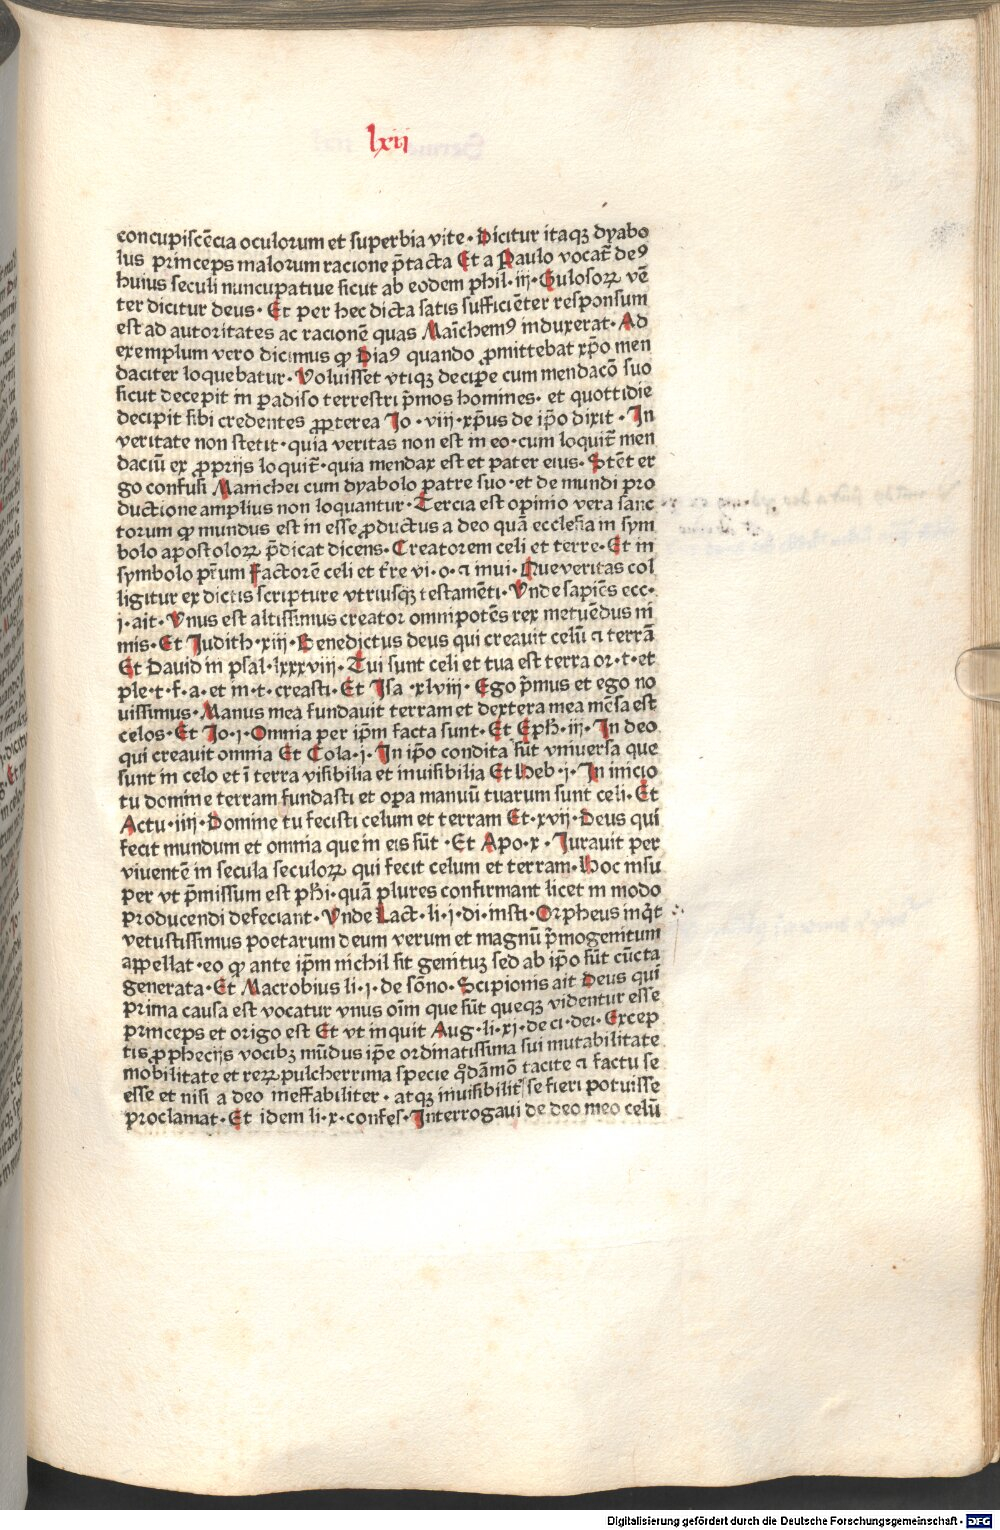 lxii
concupiscēcia oculorum et superbia vite · Dicitur itaqꝫ dyabo
lus princeps malorum racione p̄tacta Et a Paulo vocat̄ deꝰ
huius seculi nuncupatiue sicut ab eodem phil · iij · Gulosoꝝ vē
ter dicitur deus · Et per hec dicta satis sufficiēter responsum
est ad autoritates ac racionē quas Maīchemꝰ induxerat · Ad
exemplum vero dicimus ꝙ Diaꝰ quando ꝓmittebat xp̄o men
daciter loquebatur · Voluisset vtiqꝫ decipe cum mendacō suo
sicut decepit in ꝑadiso terrestri p̄mos homines · et quottidie
decipit sibi credentes ꝓpterea Jo · viij · xp̄us de ip̄o dixit · In
veritate non stetit · quia veritas non est in eo · cum loquit̄ men
daciū ex ꝓprijs loquit̄ · quia mendax est et pater eius · Stēt er
go confusi Manichei cum dyabolo patre suo · et de mundi pro
ductione amplius non loquantur · Tercia est opinio vera sanc
torum ꝙ mundus est in esse ꝓductus a deo quā ecclesia in sym
bolo apostoloꝝ p̄dicat dicens · Creatorem celi et terre · Et in
symbolo pr̄um Factorē celi et t̄re vi · o · ⁊ inui · Que veritas col
ligitur ex dictis scripture vtriusqꝫ testamēti · Vnde sapiēs ecc ·
j · ait · Vnus est altissimus creator omnipotēs rex metuēdus ni
mis · Et Judith · xiij · Benedictus deus qui creauit celū ⁊ terrā
Et Dauid in psal · lxxxviij · Tui sunt celi et tua est terra or · t · et
ple · t · f · a · et m · t · creasti · Et Isa · xlviij · Ego p̄mus et ego no
uissimus · Manus mea fundauit terram et dextera mea mēsa est
celos · Et Jo · j · Omnia per ip̄m facta sunt · Et Eph · iij · In deo
qui creauit omnia Et Cola · j · In ip̄o condita sūt vniuersa que
sunt in celo et ī terra visibilia et inuisibilia Et Heb · j · In inicio
tu domine terram fundasti et oꝑa manuū tuarum sunt celi · Et
Actu · iiij · Domine tu fecisti celum et terram Et · xvij · Deus qui
fecit mundum et omnia que in eis sūt · Et Apo · x · Jurauit per
viventē in secula seculoꝝ qui fecit celum et terram · Hoc insu
per vt p̄missum est ph̄i · quā plures confirmant licet in modo
producendi defeciant · Vnde Lact · li · j · di · insti · Orpheus inq̄t
vetustissimus poetarum deum verum et magnū p̄mogenitum
appellat · eo ꝙ ante ip̄m nichil sit genituꝫ sed ab ip̄o sūt cūcta
generata · Et Macrobius li · j · de sōno · Scipionis ait Deus qui
prima causa est vocatur vnus oīm que sūt queqꝫ videntur esse
princeps et origo est Et vt inquit Aug · li · xj · de ci · dei · Excep
tis ꝓphecijs vocibꝫ mūdus ip̄e ordinatissima sui mutabilitate
mobilitate et reꝝ pulcherrima specie q̄dāmō tacite ⁊ factū se
esse et nisi a deo ineffabiliter · atqꝫ inuisibilit̄ se fieri potuisse
proclamat · Et idem li · x · confes · Interrogaui de deo meo celū
Digitalisierung gefördert durch die Deutsche Forschungsgemeinschaft - DFG